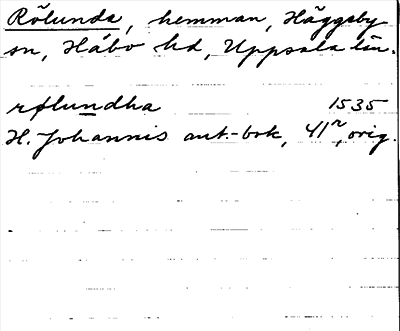 Rölunda, hemman, Häggeby
sn, Håbo hd, Uppsala län.
rølundha 1535
H. Johannis ant.-bok, 41r, orig.